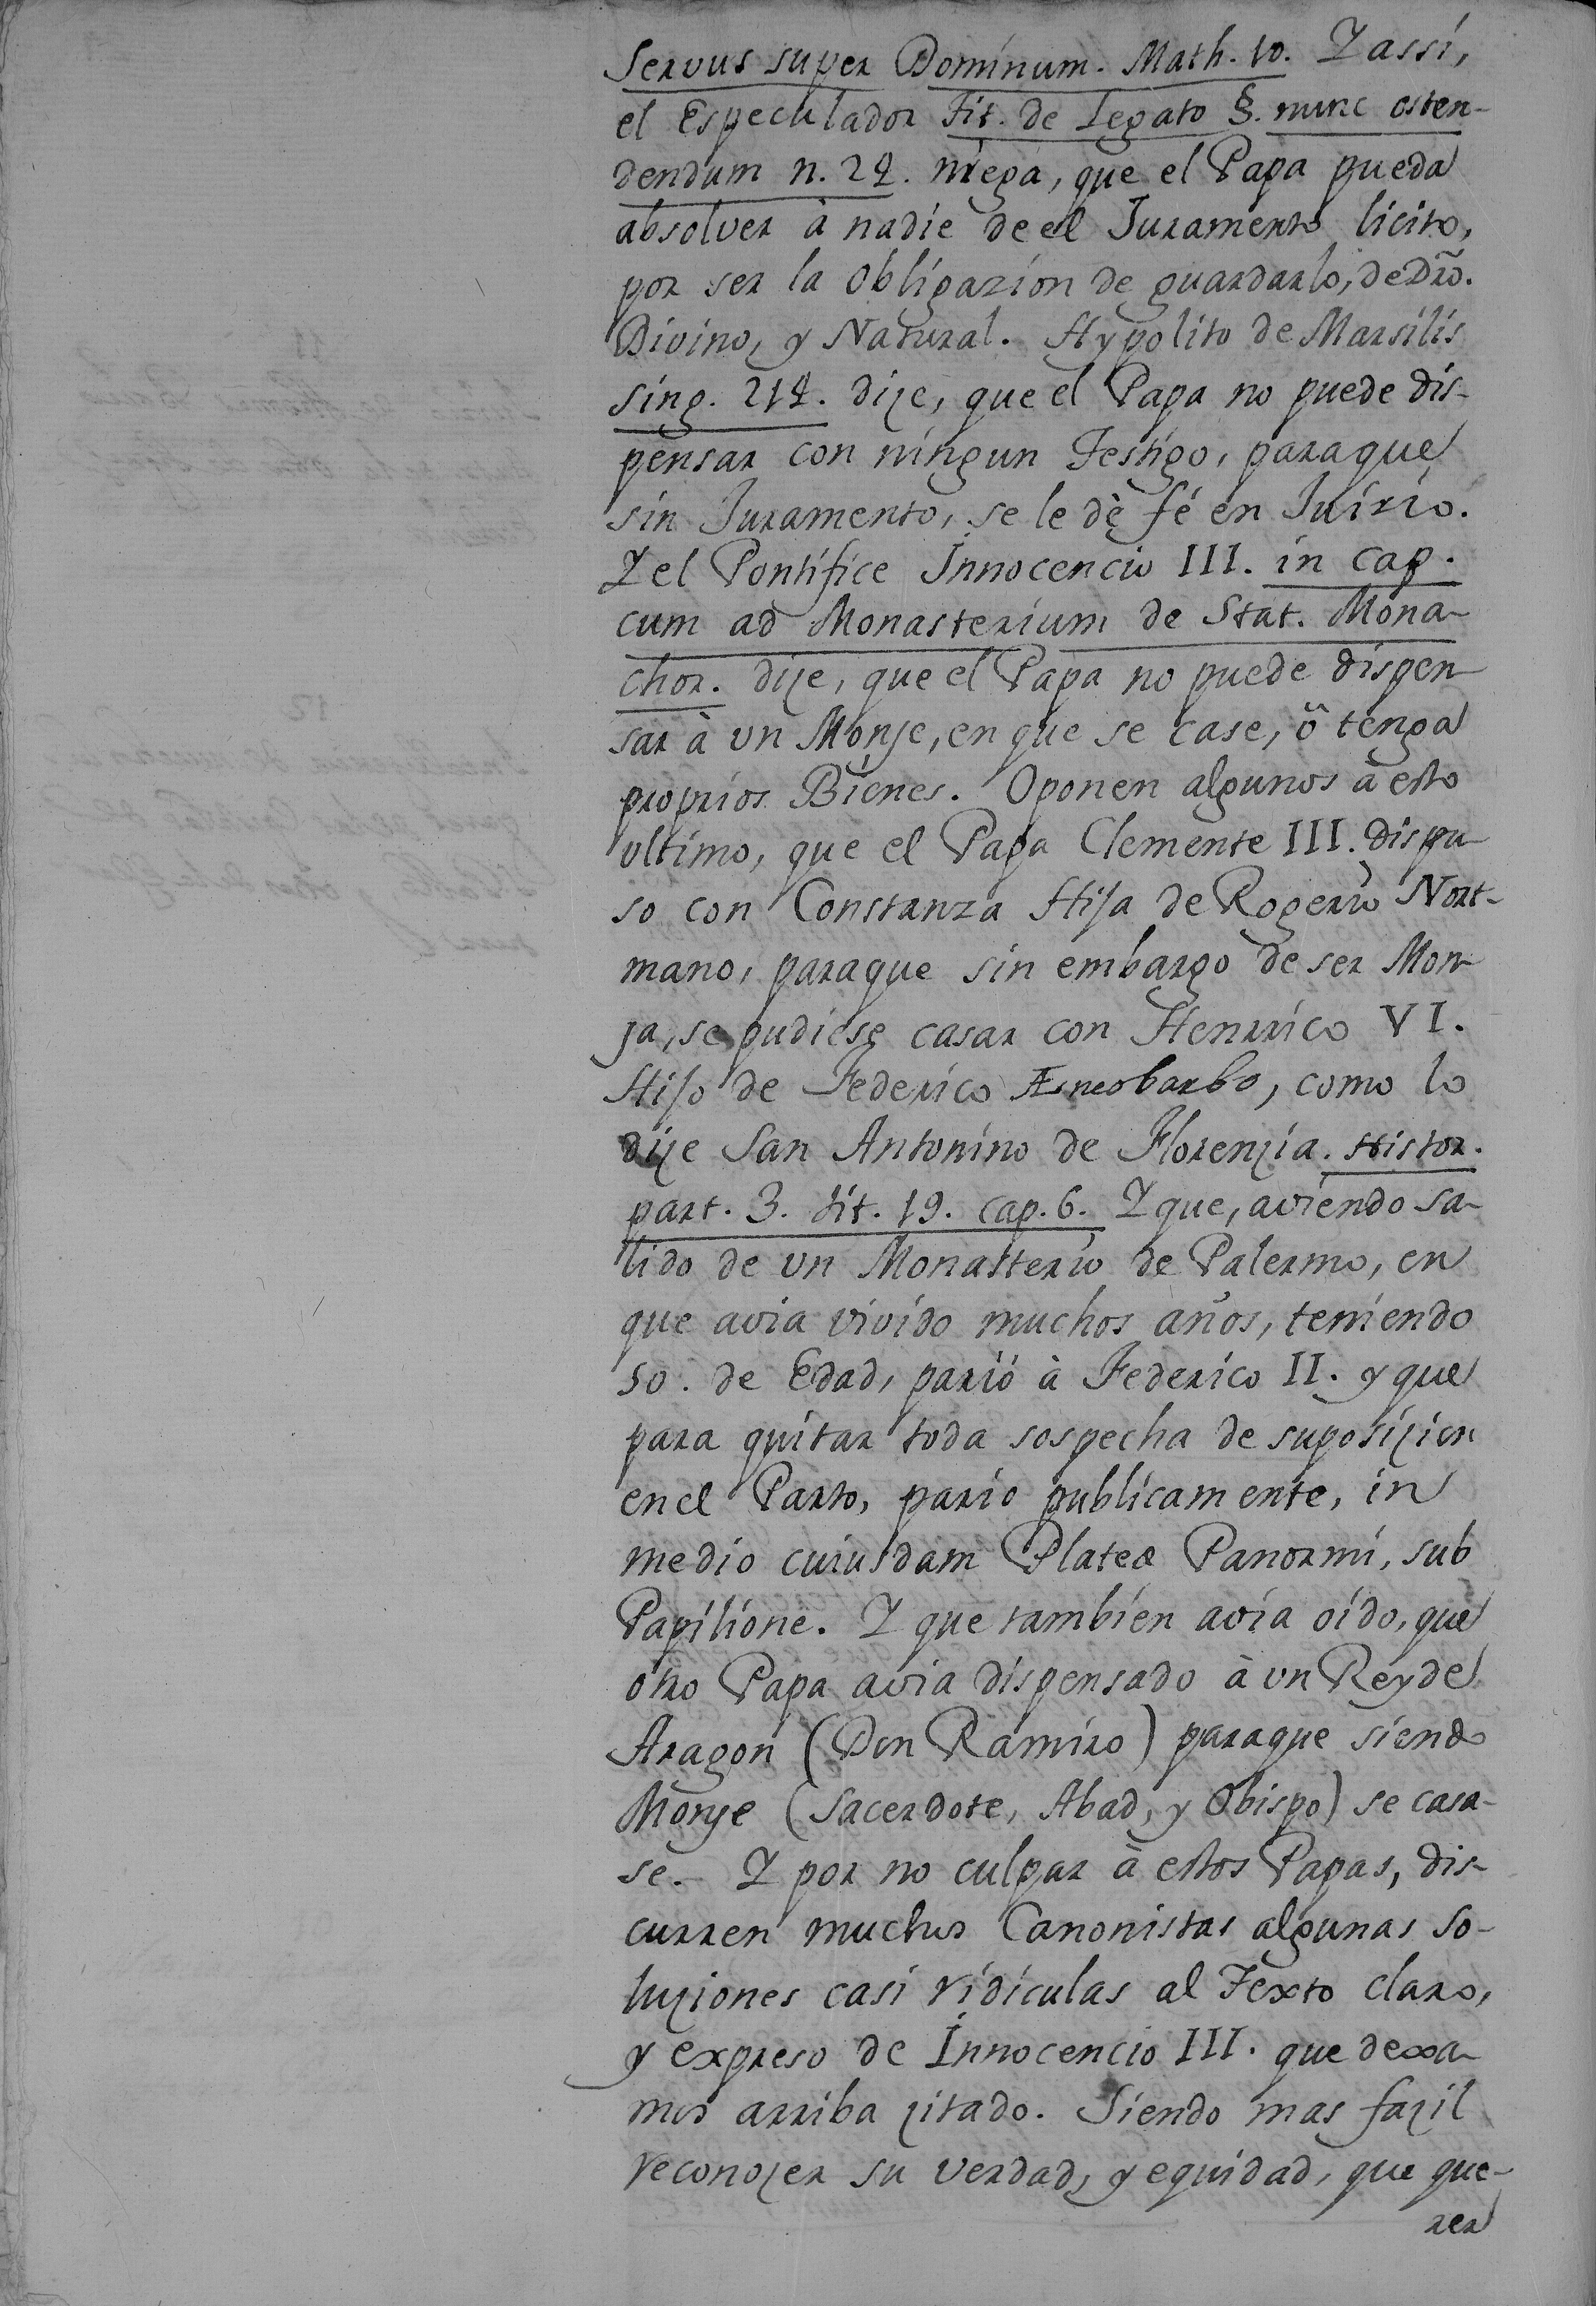 Servus super Dominum. Math. 10. Y assi,
el Especulador Tit. de Legato §. nunc osten-
dendum n. 24. niega, que el Papa pueda
absolver à nadie de el Juramento licito,
por ser la Obligazion de guardarlo, de Dro.
Divino, y Natural. Hypolito de Marsilis
sing. 214. dize, que el Papa no puede dis-
pensar con ningun Testigo, paraque
sin Juramento, se le dè fé en Juizio.
Y el Pontifice Innocencio III. in cap.
cum ad Monasterium de Stat. Mona-
chor. dize, que el Papa no puede dispen-
sar à un Monje, en que se case, ô tenga
proprios Bienes. Oponen algunos à esto
ultimo, que el Papa Clemente III. dispu-
so con Constanza Hija de Rogerio Nort-
mano, paraque sin embargo de ser Mon-
ja, se pudiese casar con Henrrico VI.
Hijo de Federico Æneobarbo, como lo
dize San Antonino de Florenzia. Histor.
part. 3. tit. 19. cap. 6. Y que, aviendo sa-
lido de un Monasterio de Palermo, en
que avia vivido muchos años, teniendo
50. de Edad, parió à Federico II. y que
para quitar toda sospecha de suposizion
en el Parto, pario publicamente, in
medio cuiusdam Plateæ Panormi, sub
Papilione. Y que tambien avia oido, que
otro Papa avia dispensado à un Rey de
Aragon (Don Ramiro) paraque siendo
Monje (Sacerdote, Abad, y Obispo) se casa-
se. Y por no culpar à estos Papas, dis-
curren muchos Canonistas algunas so-
luziones casi ridiculas al Texto claro,
y expreso de Innocencio III. que dexa-
mos arriba zitado. Siendo mas fazil
reconozer su verdad, y equidad, que que-
rer